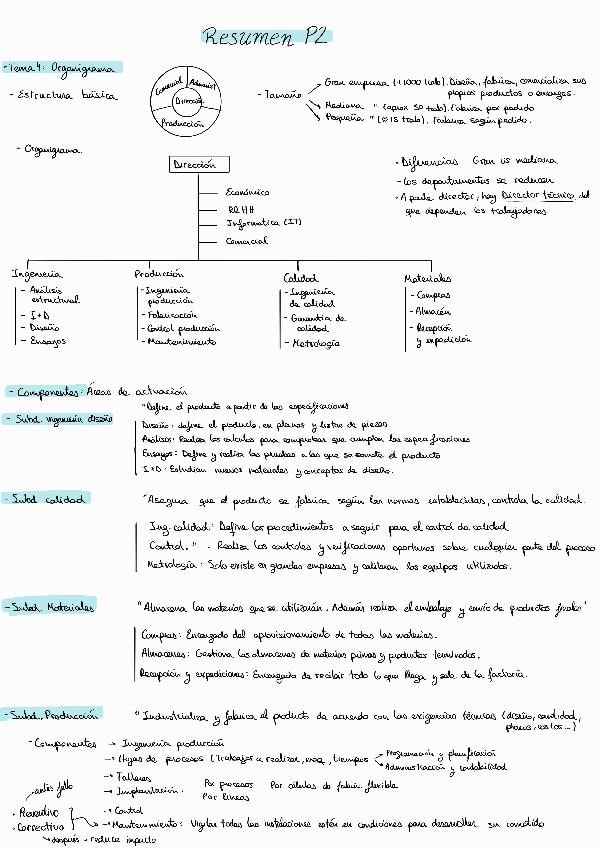 Resumen P2
-Tema 4: Organigrama
- Estructura básica
Comercial
Administ
Dirección
Producción
- Tamaño
Gran empresa (+1000 trab). Diseña, fabrica, comercializa sus
propios productos o encargos.
Mediana " (aprox 50 trab). Fabrica por pedido
Pequeña " (∅ 15 trab). Fabrica según pedido.
- Organigrama.
Dirección
Económico
RRHH
Informática (IT)
Comercial
· Diferencias Gran vs mediana
- Los departamentos se reducen
· A parte director, hay Director técnico del
que dependen los trabajadores
Ingeniería
- Análisis
estructural
- I+D
- Diseño
- Ensayos
Producción
- Ingeniería
producción
- Fabricación
- Control producción
- Mantenimiento
Calidad
- Ingeniería
de calidad
- Garantía de
calidad
- Metrología
Materiales
- Compras
- Almacén
- Recepción
y expedición
- Componentes: Áreas de actuación
- Subd. ingeniería diseño
"Define el producto a partir de las especificaciones
Diseño: define el producto en planos y listas de piezas
Análisis: Realiza los cálculos para comprobar que cumplan las especificaciones
Ensayos: Define y realiza las pruebas a las que se somete el producto
I+D: Estudian nuevos materiales y conceptos de diseño.
- Subd calidad
"Asegura que el producto se fabrica según las normas establecidas, controla la calidad.
Ing. calidad: Define los procedimientos a seguir para el control de calidad
Control. " . Realiza los controles y verificaciones oportunos sobre cualquier parte del proceso
Metrología: Solo existe en grandes empresas y calibran los equipos utilizados.
- Subd. Materiales
"Almacena las materias que se utilizarán. Además realiza el embalaje y envío de productos finales"
Compras: Encargado del aprovisionamiento de todas las materias.
Almacenes: Gestiona los almacenes de materias primas y productos terminados.
Recepción y expediciones: Encargado de recibir todo lo que llega y sale de la factoría.
- Subd. Producción
"Industrializa y fabrica el producto de acuerdo con las exigencias técnicas (diseño, cantidad,
planos, costes...)
- Componentes → Ingeniería producción
→ Hojas de procesos (Trabajos a realizar, maq, tiempos
Programación y planificación
Administración y contabilidad
→ Talleres
→ Implantación.
Por procesos
Por líneas
Por células de fabric. flexible
antes fallo
· Preventivo
· Correctivo
→ después - reduce impacto
→ Control
→ Mantenimiento: Vigilar todas las instalaciones estén en condiciones para desarrollar su cometido